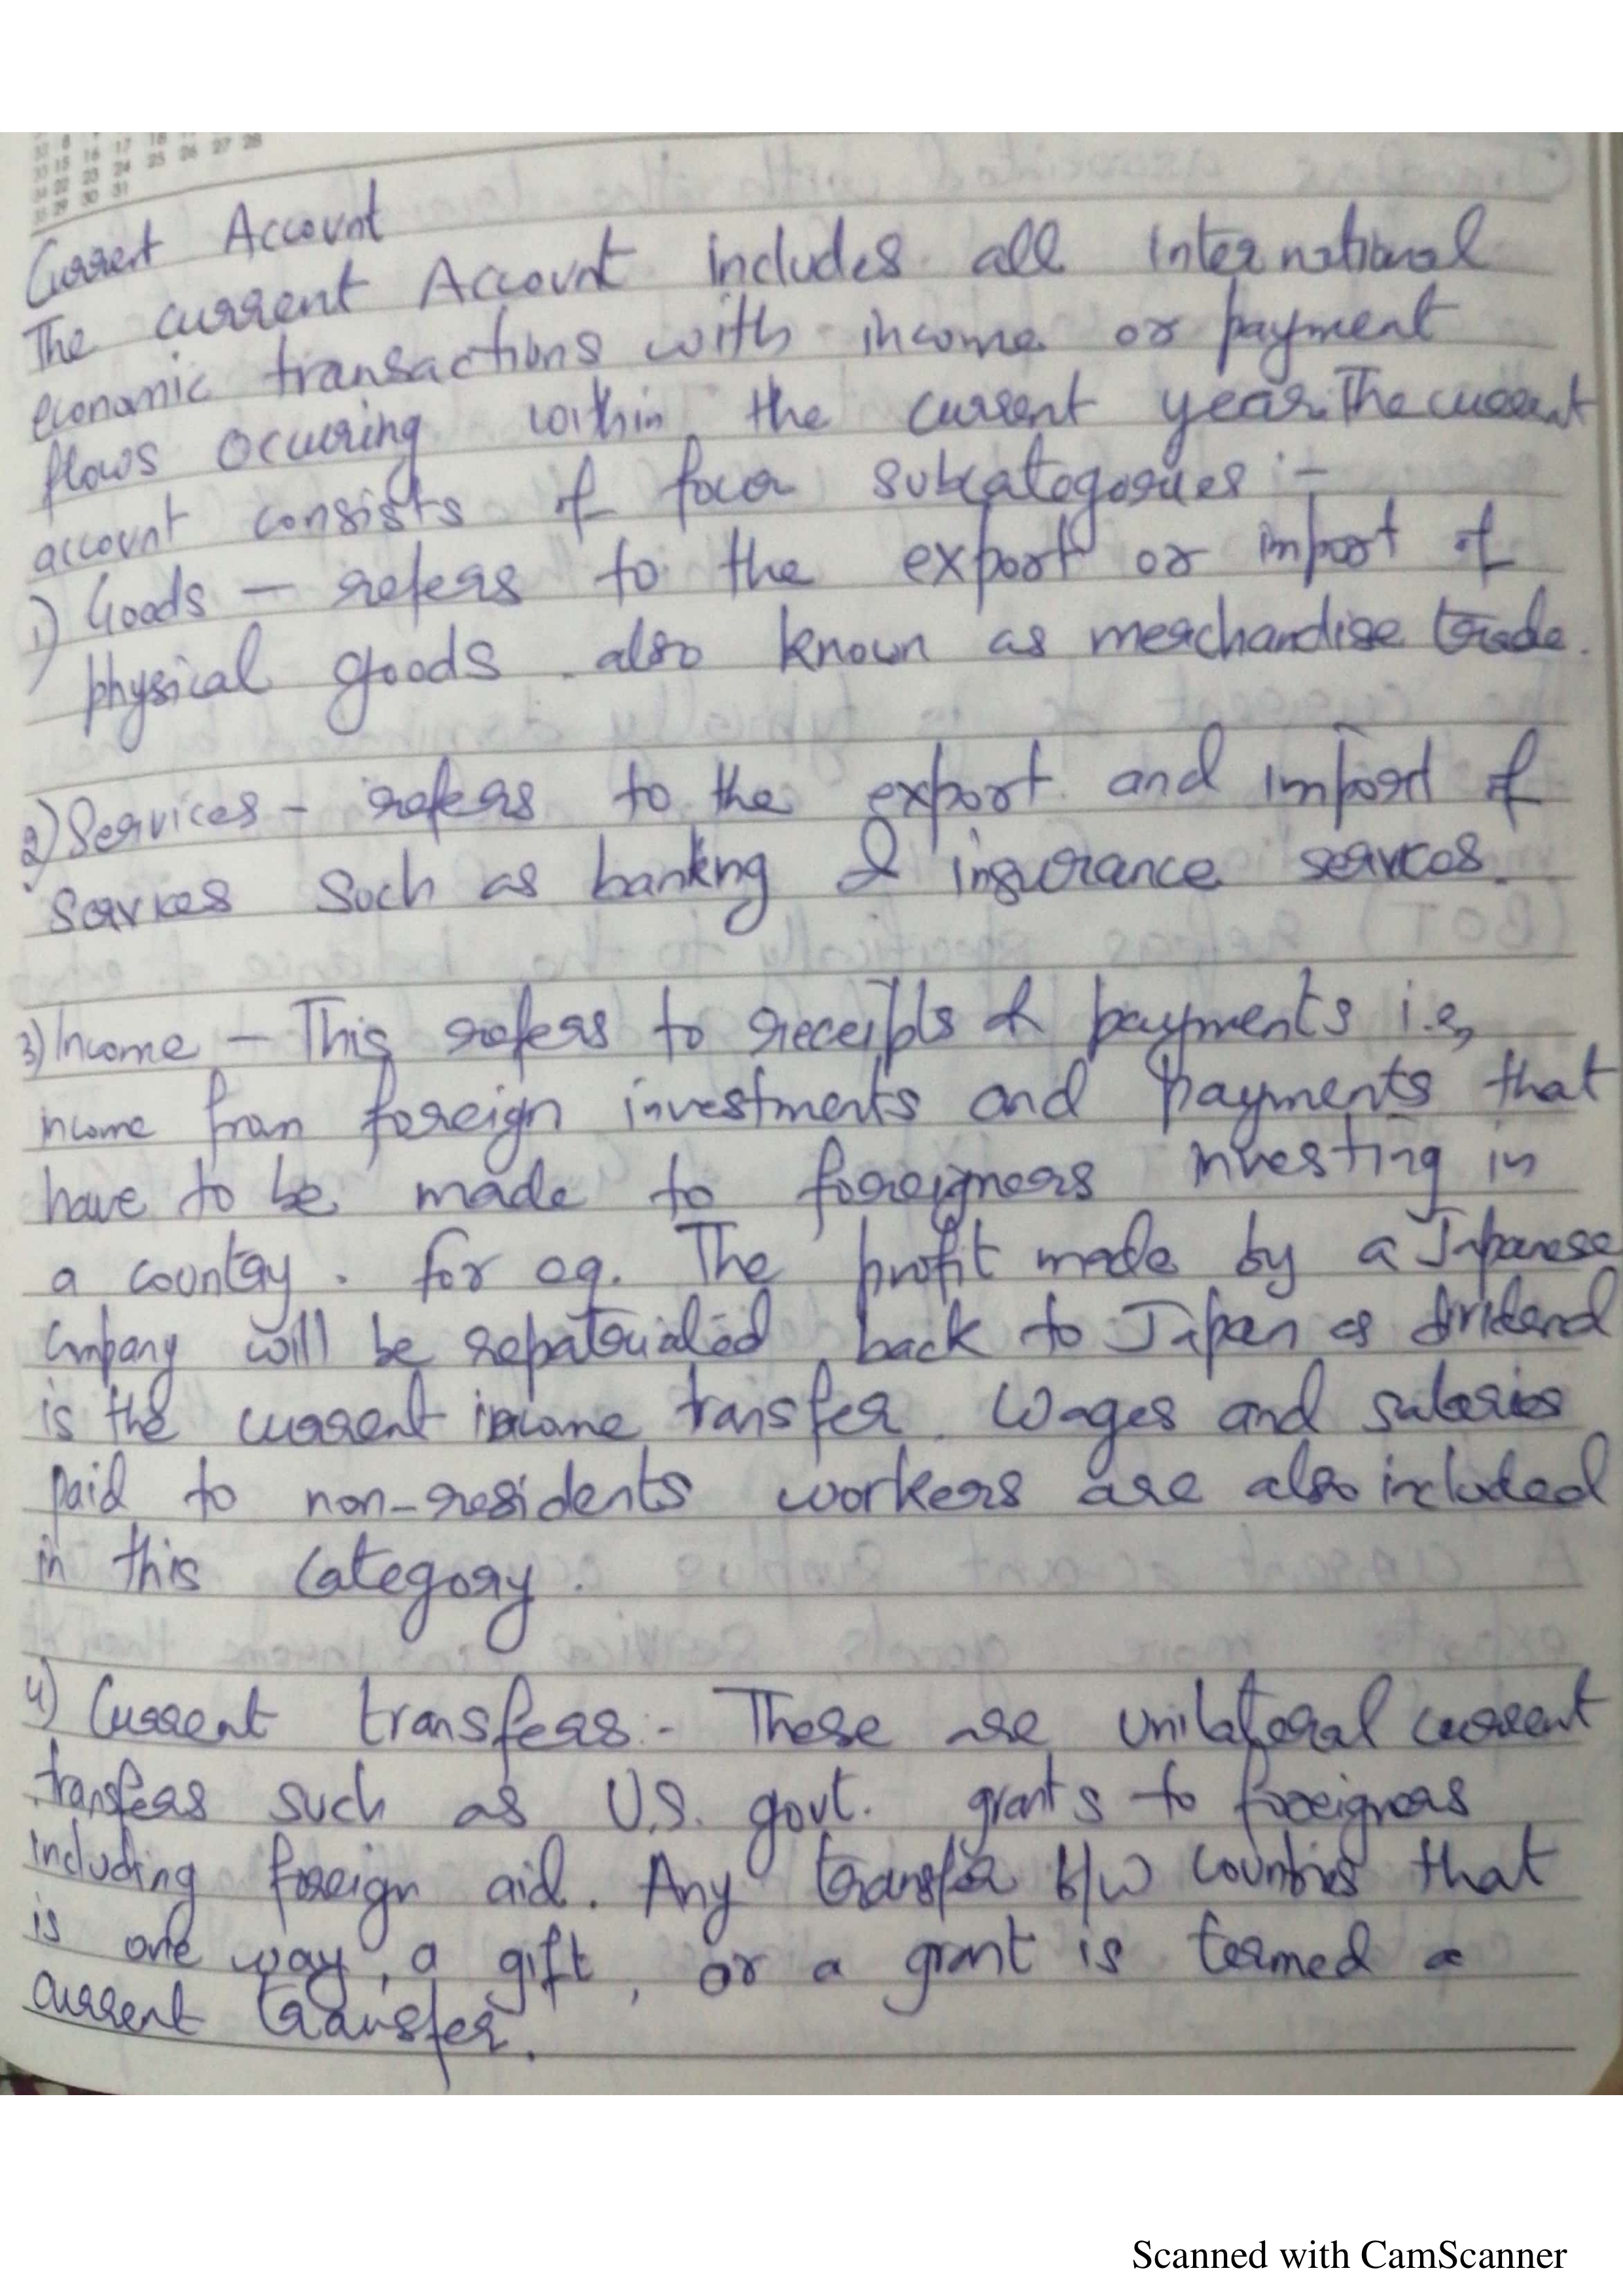 16 17 18
15 16 17 18
22 23 24 25 26 27 28
29 30 31
Current Account
The current Account includes all International
economic transactions with income or payment
flows occuring within the current year. The current
account consists of four subcategories :-
1) Goods - refers to the export or import of
physical goods. also known as merchandise trade.
2) Services - refers to the export and import of
Services such as banking & insurance services.
3) Income - This refers to receipts & payments i.e,
income from foreign investments and payments that
have to be made to foreigners investing in
a country. for eg. The profit made by a Japanese
Company will be repatriated back to Japan as dividend
is the current income transfer. Wages and salaries
paid to non-residents workers are also included
in this category.
4) Current transfers :- These are unilateral current
transfers such as U.S. govt. grants to foreigners
including foreign aid. Any transfer b/w countries that
is one way, a gift, or a grant is termed a
current transfer.
Scanned with CamScanner